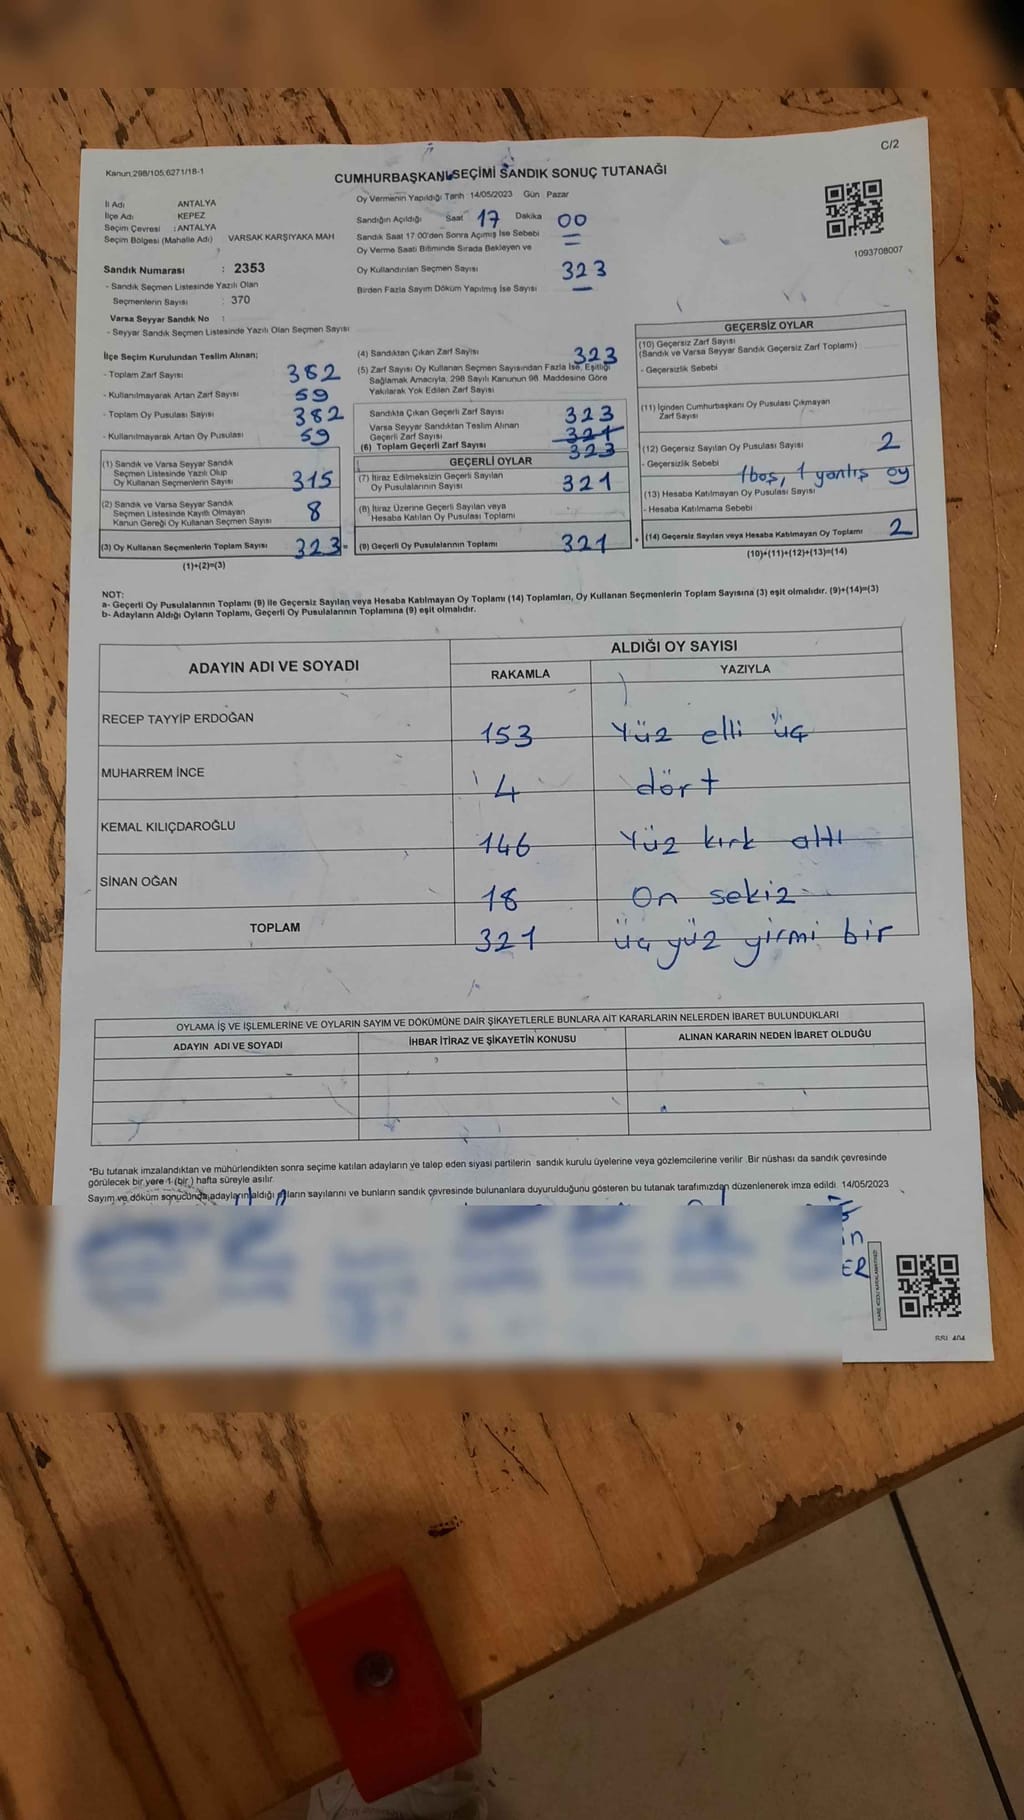 C/2
Kanun,298/105;6271/18-1
CUMHURBAŞKANI SEÇİMİ SANDIK SONUÇ TUTANAĞI
İl Adı ANTALYA
İlçe Adı KEPEZ
Seçim Çevresi : ANTALYA
Seçim Bölgesi (Mahalle Adı) VARSAK KARŞIYAKA MAH
Oy Vermenin Yapıldığı Tarih 14/05/2023 Gün Pazar
Sandığın Açıldığı Saat 17 Dakika 00
Sandık Saat 17:00'den Sonra Açımış İse Sebebi
Oy Verme Saati Bitiminde Sırada Bekleyen ve
Oy Kullandırılan Seçmen Sayısı 323
Birden Fazla Sayım Döküm Yapılmış İse Sayısı —
1093708007
Sandık Numarası : 2353
- Sandık Seçmen Listesinde Yazılı Olan
Seçmenlerin Sayısı : 370
Varsa Seyyar Sandık No :
- Seyyar Sandık Seçmen Listesinde Yazılı Olan Seçmen Sayısı
İlçe Seçim Kurulundan Teslim Alınan;
- Toplam Zarf Sayısı 382
- Kullanılmayarak Artan Zarf Sayısı 59
- Toplam Oy Pusulası Sayısı 382
- Kullanılmayarak Artan Oy Pusulası 59
(1) Sandık ve Varsa Seyyar Sandık
Seçmen Listesinde Yazılı Olup
Oy Kullanan Seçmenlerin Sayısı 315
(2) Sandık ve Varsa Seyyar Sandık
Seçmen Listesinde Kayıtlı Olmayan
Kanun Gereği Oy Kullanan Seçmen Sayısı 8
(3) Oy Kullanan Seçmenlerin Toplam Sayısı 323 =
(1)+(2)=(3)
(4) Sandıktan Çıkan Zarf Sayısı 323
(5) Zarf Sayısı Oy Kullanan Seçmen Sayısından Fazla İse, Eşitliği
Sağlamak Amacıyla, 298 Sayılı Kanunun 98. Maddesine Göre
Yakılarak Yok Edilen Zarf Sayısı
Sandıkta Çıkan Geçerli Zarf Sayısı 323
Varsa Seyyar Sandıktan Teslim Alınan
Geçerli Zarf Sayısı 321
(6) Toplam Geçerli Zarf Sayısı 323
GEÇERLİ OYLAR
(7) İtiraz Edilmeksizin Geçerli Sayılan
Oy Pusulalarının Sayısı 321
(8) İtiraz Üzerine Geçerli Sayılan veya
Hesaba Katılan Oy Pusulası Toplamı
(9) Geçerli Oy Pusulalarının Toplamı 321 +
GEÇERSİZ OYLAR
(10) Geçersiz Zarf Sayısı
(Sandık ve Varsa Seyyar Sandık Geçersiz Zarf Toplamı)
- Geçersizlik Sebebi
(11) İçinden Cumhurbaşkanı Oy Pusulası Çıkmayan
Zarf Sayısı
(12) Geçersiz Sayılan Oy Pusulası Sayısı 2
- Geçersizlik Sebebi
1 boş, 1 yanlış oy
(13) Hesaba Katılmayan Oy Pusulası Sayısı
- Hesaba Katılmama Sebebi
(14) Geçersiz Sayılan veya Hesaba Katılmayan Oy Toplamı 2
(10)+(11)+(12)+(13)=(14)
NOT:
a- Geçerli Oy Pusulalarının Toplamı (9) ile Geçersiz Sayılan veya Hesaba Katılmayan Oy Toplamı (14) Toplamları, Oy Kullanan Seçmenlerin Toplam Sayısına (3) eşit olmalıdır. (9)+(14)=(3)
b- Adayların Aldığı Oyların Toplamı, Geçerli Oy Pusulalarının Toplamına (9) eşit olmalıdır.
ADAYIN ADI VE SOYADI ALDIĞI OY SAYISI
RAKAMLA YAZIYLA
RECEP TAYYİP ERDOĞAN 153 Yüz elli üç
MUHARREM İNCE 4 dört
KEMAL KILIÇDAROĞLU 146 Yüz kırk altı
SİNAN OĞAN 18 On sekiz
TOPLAM 321 üç yüz yirmi bir
OYLAMA İŞ VE İŞLEMLERİNE VE OYLARIN SAYIM VE DÖKÜMÜNE DAİR ŞİKAYETLERLE BUNLARA AİT KARARLARIN NELERDEN İBARET BULUNDUKLARI
ADAYIN ADI VE SOYADI İHBAR İTİRAZ VE ŞİKAYETİN KONUSU ALINAN KARARIN NEDEN İBARET OLDUĞU
*Bu tutanak imzalandıktan ve mühürlendikten sonra seçime katılan adayların ve talep eden siyasi partilerin sandık kurulu üyelerine veya gözlemcilerine verilir. Bir nüshası da sandık çevresinde
görülecek bir yere 1 (bir) hafta süreyle asılır.
Sayım ve döküm sonucunda adayların aldığı oyların sayılarını ve bunların sandık çevresinde bulunanlara duyurulduğunu gösteren bu tutanak tarafımızdan düzenlenerek imza edildi. 14/05/2023
in
ER